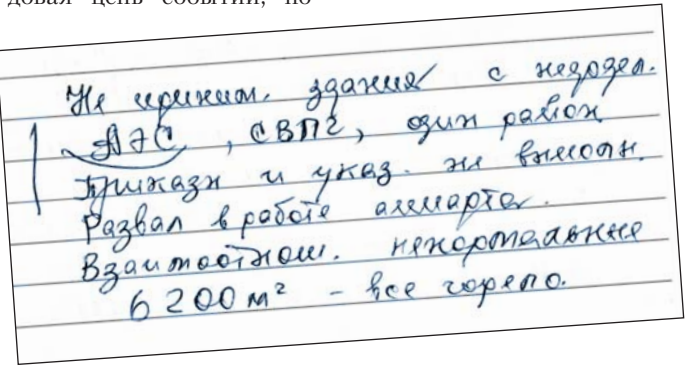 довая цепь событий, по
Не приним. здания с недодел.
АЭС, СВПЧ, один район
Приказы и указ. не выполн.
Развал в работе аппарта.
Взаимоотнош. ненормальные
6200 м² – все горело.